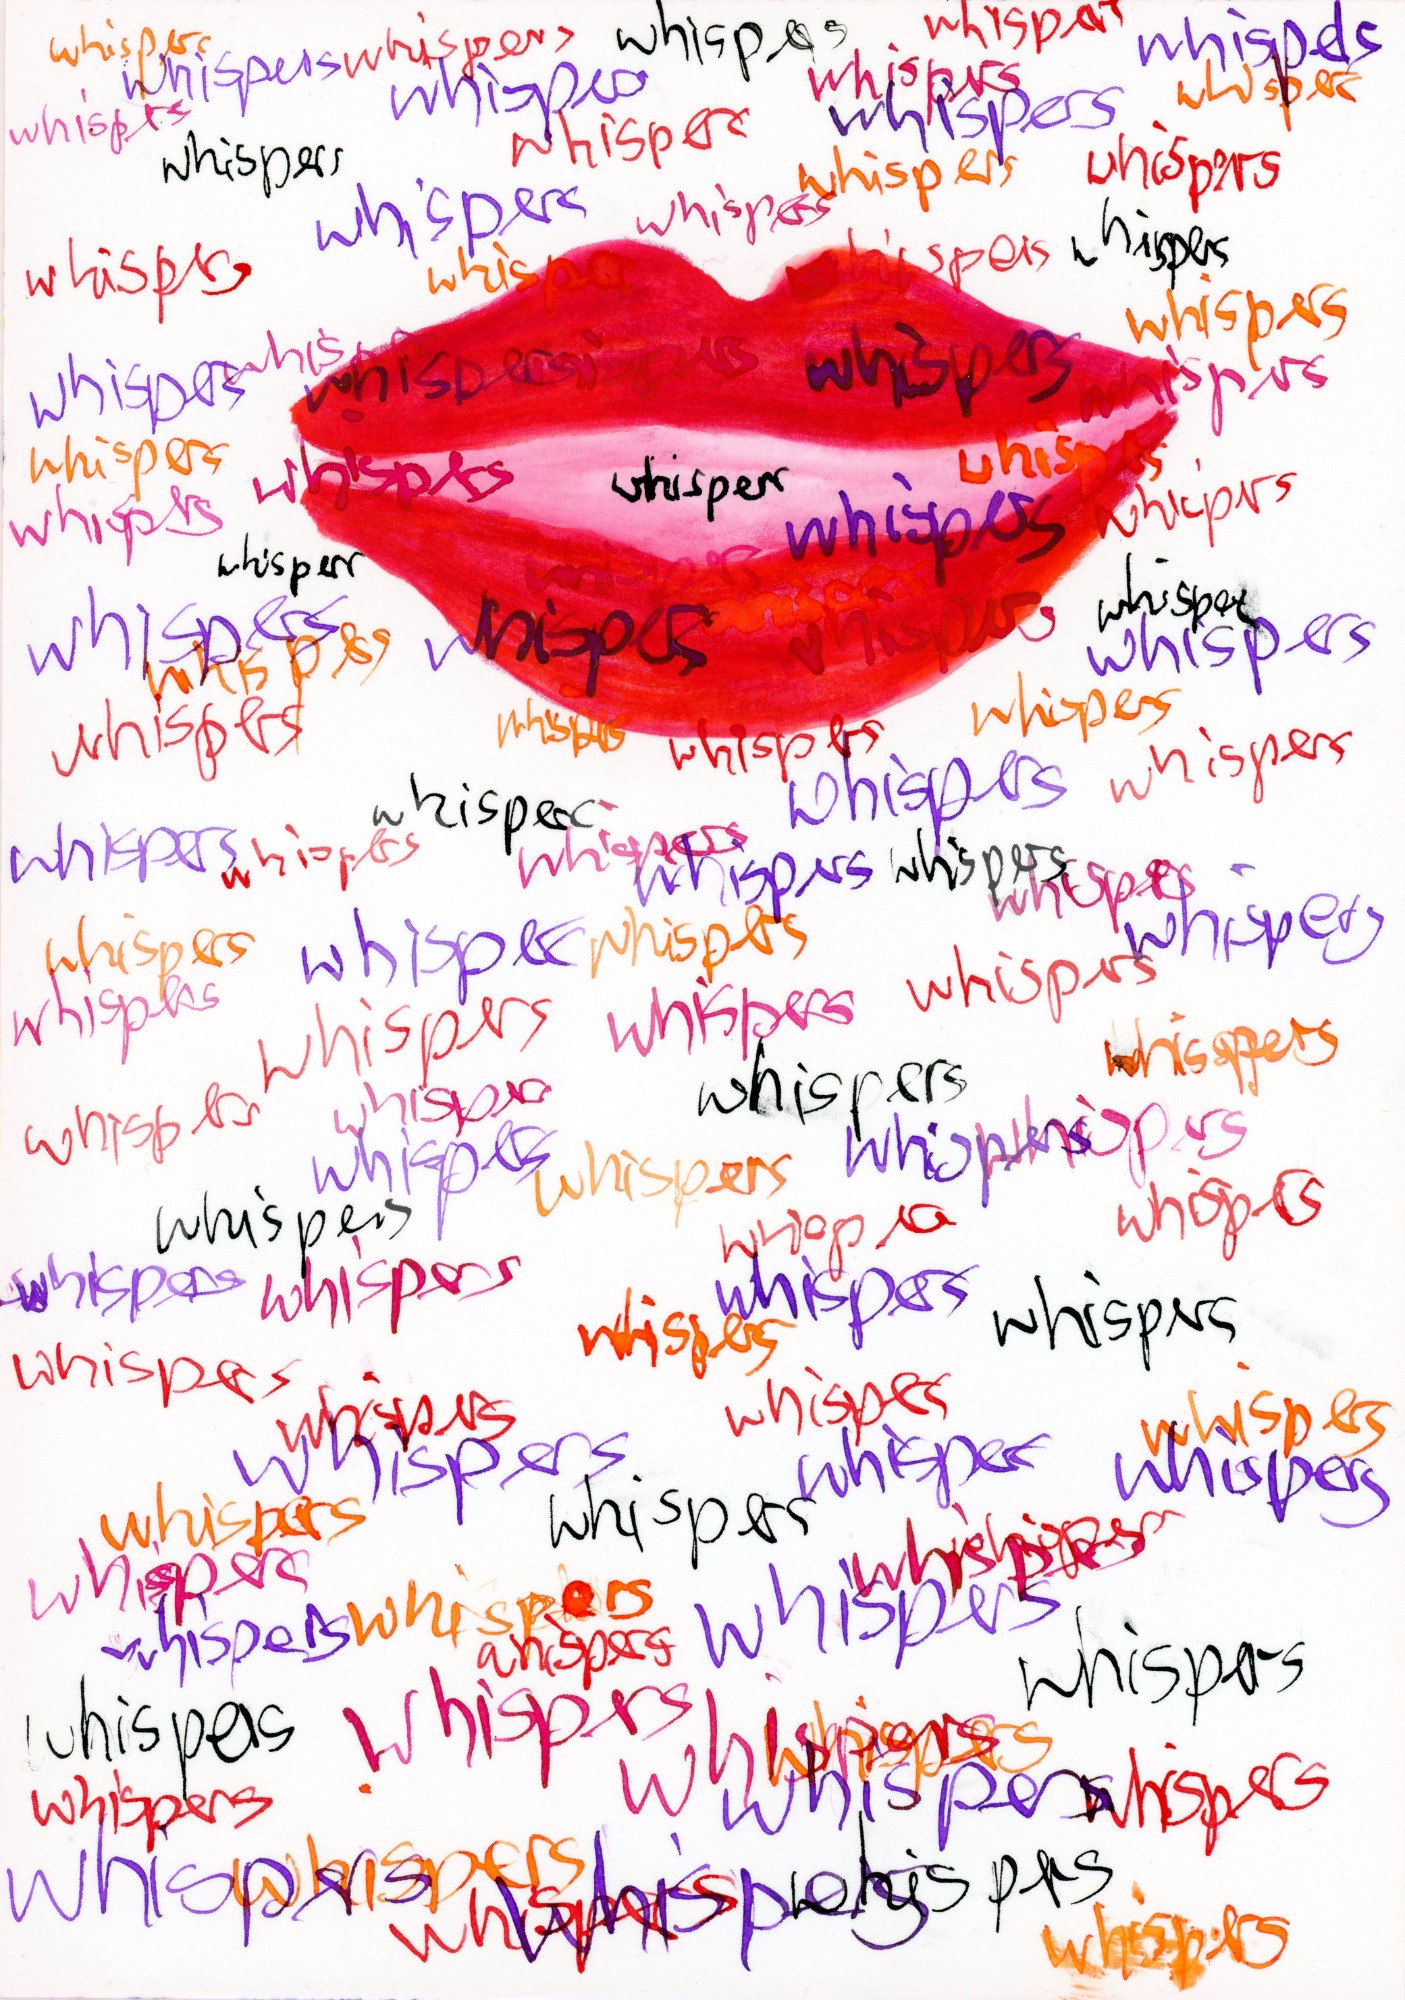 whispers whispers whispers whispers whispers
whispers whispers whispers whispers
whispers whispers whispers
whispers whispers whispers
whispers whispers whispers
whispers whispers whispers
whispers whispers
whispers whispers whispers
whispers whispers whispers whispers
whispers whispers
whispers whispers whispers whispers
whispers whispers
whispers whispers whispers
whispers whispers
whispers whispers whispers
whispers whispers whispers
whispers whispers whispers
whispers whispers whispers
whispers whispers whispers whispers
whispers whispers whispers whispers
whispers whispers whispers
whispers whispers whispers
whispers whispers whispers
whispers whispers whispers
whispers whispers whispers
whispers whispers
whispers whispers whispers whispers
whispers whispers whispers
whispers whispers whispers
whispers whispers whispers
whispers whispers whispers
whispers whispers
whispers whispers whispers
whispers whispers whispers
whispers whispers whispers
whispers whispers
whispers whispers whispers
whispers whispers whispers whispers
whispers whispers